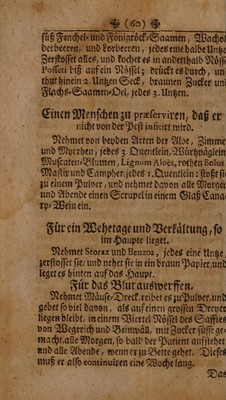 (60)
süß Fenchel- und Fönigröck-Saamen, Wachol
derbeeren, und Lorbeeren, jedes eine halbe Untze
Zerstosset alles, und kochet es in anderthalb Nösse
Posseti biß auf ein Nössel; drückt es durch, un
thut hinein 2. Untzen Seck, braunen Zucker un
Flachs-Saamen-Oel, jedes 3. Untzen.
Einen Menschen zu præserviren, daß er
nicht von der Pest inficirt wird.
Nehmet von beyden Arten der Aloe, Zimme
und Myrrhen, jedes 3. Quentlein, Würtznäglein
Muscaten-Blumen, Lignum Aloes, rothen Bolus
Mastix und Campher jedes 1. Quentlein: stoßt sie
zu einem Pulver, und nehmet davon alle Morgen
und Abende einen Scrupel in einem Glaß Cana
ry-Wein ein.
Für ein Wehetage und Verkältung, so
im Haupte lieget.
Nehmet Storax und Benzoa, jedes eine Untze
zerstosset sie, und nehet sie in ein braun Papier, und
leget es hinten auf das Haupt.
Für das Blut auswerffen.
Nehmet Mäuse-Dreck, reibet es zu Pulver, und
gebet so viel davon, als auf einen groschen Dreyer
liegen bleibt, in einem Viertel Nössel des Safftes
von Wegerich und Beinwäll, mit Zucker süsse ge-
macht, alle Morgen, so bald der Patient aufstehet
und alle Abende, wenn er zu Bette gehet. Dieses
muß er also continuiren eine Woche lang.
Das